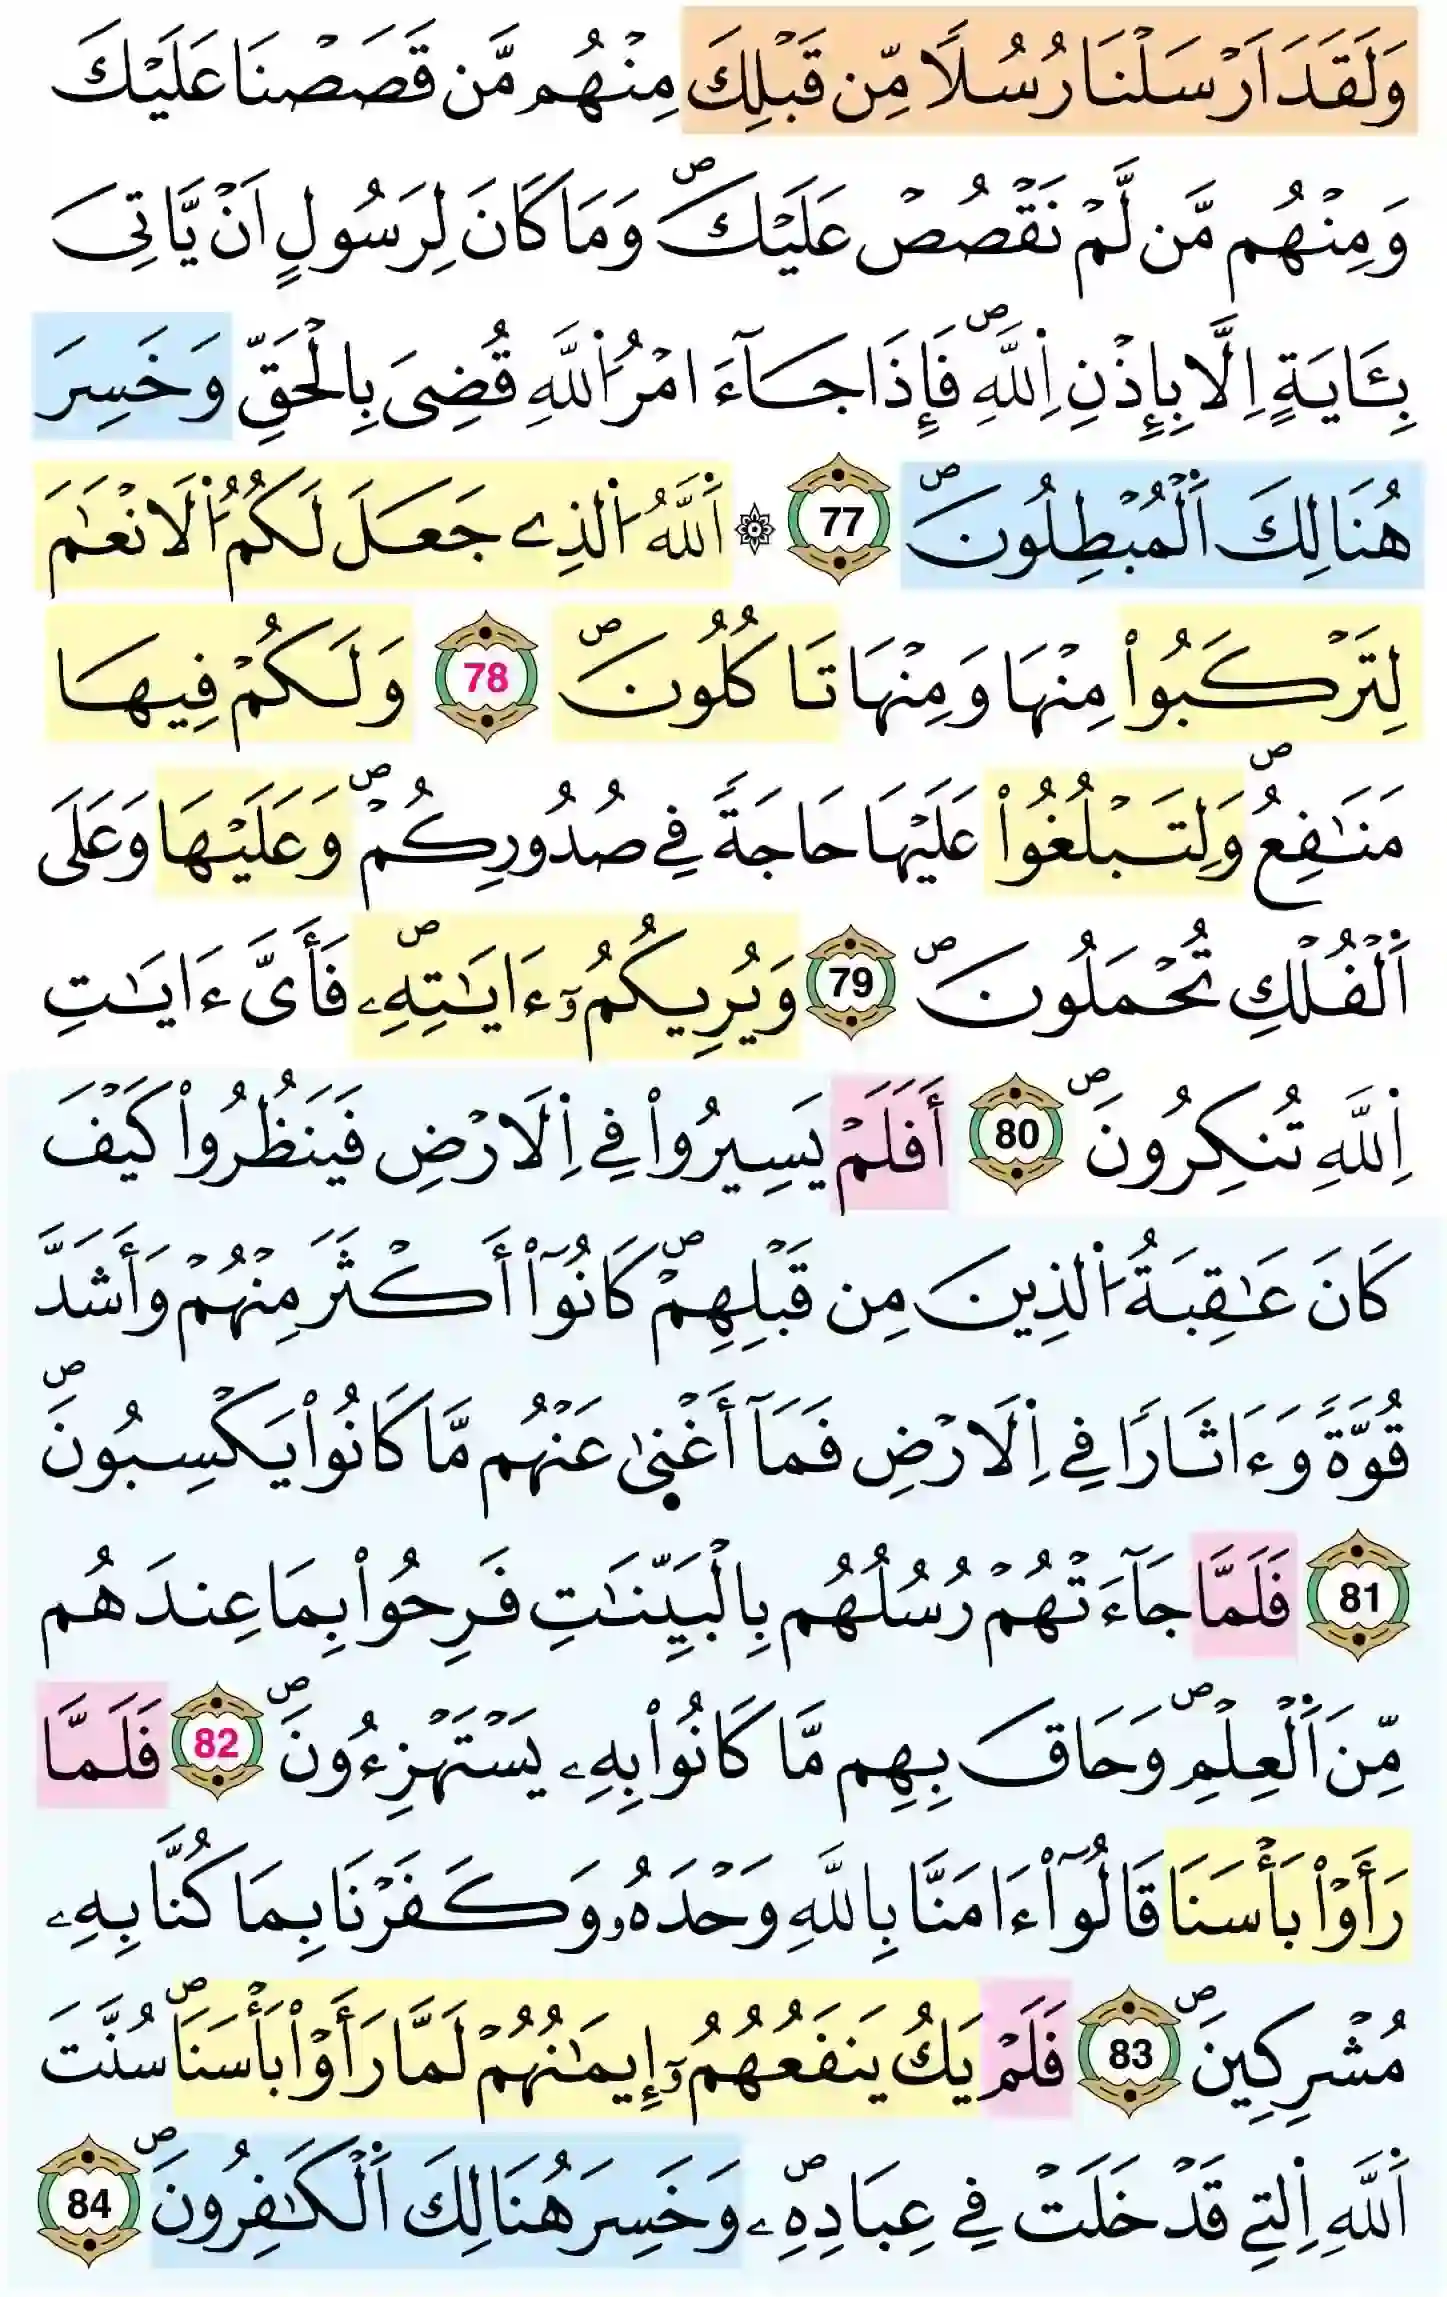 وَلَقَدَ اَرْسَلْنَا رُسُلًا مِّن قَبْلِكَ مِنْهُم مَّن قَصَصْنَا عَلَيْكَ
وَمِنْهُم مَّن لَّمْ نَقْصُصْ عَلَيْكَۖ وَمَا كَانَ لِرَسُولٍ اَنْ يَّاتِيَ
بِـَٔايَةٍ اِلَّا بِإِذْنِ اِ۬للَّهِۖ فَإِذَا جَآءَ امْرُ اُ۬للَّهِ قُضِيَ بِالْحَقِّ وَخَسِرَ
هُنَالِكَ اَ۬لْمُبْطِلُونَۖ 77 ۞ اَ۬للَّهُ اُ۬لذِے جَعَلَ لَكُمُ اُ۬لَانْعَٰمَ
لِتَرْكَبُواْ مِنْهَا وَمِنْهَا تَاكُلُونَۖ 78 وَلَكُمْ فِيهَا
مَنَٰفِعُۖ وَلِتَبْلُغُواْ عَلَيْهَا حَاجَةً فِے صُدُورِكُمْۖ وَعَلَيْهَا وَعَلَى
اَ۬لْفُلْكِ تُحْمَلُونَۖ 79 وَيُرِيكُمُۥٓ ءَايَٰتِهِۦۖ فَأَيَّ ءَايَٰتِ
اِ۬للَّهِ تُنكِرُونَۖ 80 أَفَلَمْ يَسِيرُواْ فِے اِ۬لَارْضِ فَيَنظُرُواْ كَيْفَ
كَانَ عَٰقِبَةُ اُ۬لذِينَ مِن قَبْلِهِمْۖ كَانُوٓاْ أَكْثَرَ مِنْهُمْ وَأَشَدَّ
قُوَّةً وَءَاثَارًا فِے اِ۬لَارْضِ فَمَآ أَغْن۪ىٰ عَنْهُم مَّا كَانُواْ يَكْسِبُونَۖ
81 فَلَمَّا جَآءَتْهُمْ رُسُلُهُم بِالْبَيِّنَٰتِ فَرِحُواْ بِمَا عِندَهُم
مِّنَ اَ۬لْعِلْمِۖ وَحَاقَ بِهِم مَّا كَانُواْ بِهِۦ يَسْتَهْزِءُونَۖ 82 فَلَمَّا
رَأَوْاْ بَأْسَنَا قَالُوٓاْ ءَامَنَّا بِاللَّهِ وَحْدَهُۥ وَكَفَرْنَا بِمَا كُنَّا بِهِۦ
مُشْرِكِينَۖ 83 فَلَمْ يَكُ يَنفَعُهُمُۥٓ إِيمَٰنُهُمْ لَمَّا رَأَوْاْ بَأْسَنَاۖ سُنَّتَ
اَ۬للَّهِ اِ۬لتِے قَدْ خَلَتْ فِے عِبَادِهِۦۖ وَخَسِرَ هُنَالِكَ اَ۬لْكَٰفِرُونَۖ 84